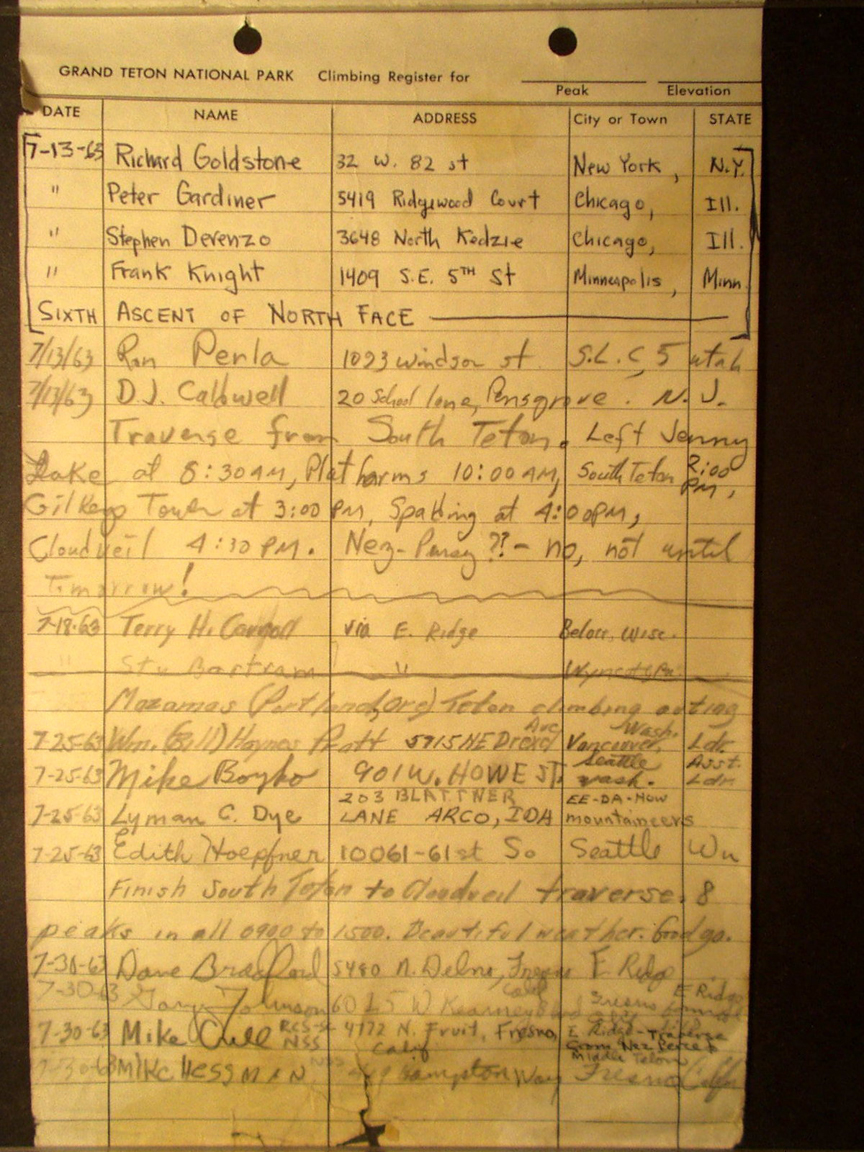 GRAND TETON NATIONAL PARK Climbing Register for
Peak Elevation
DATE NAME ADDRESS City or Town STATE
7-13-63 Richard Goldstone 32 W. 82 st New York, N.Y.
" Peter Gardiner 5419 Ridgewood Court Chicago, Ill.
" Stephen Derenzo 3648 North Kedzie Chicago, Ill.
" Frank Knight 1409 S.E. 5TH St Minneapolis, Minn.
SIXTH ASCENT OF NORTH FACE
7/13/63 Ron Perla 1023 windsor st. S.L.C, 5 utah
7/13/63 D.J. Caldwell 20 School lane, Pensgrove. N.J.
Traverse from South Teton. Left Jenny
Lake at 8:30 AM, Platforms 10:00 AM, South Teton 2:00 PM,
Gilkeys Tower at 3:00 PM, Spalding at 4:00 PM,
Cloudveil 4:30 PM. Nez-Persey ?? - no, not until
Tomorrow!
7-18-63 Terry H. via E. Ridge Beloit, Wisc.
" Stu Bartram " Wyncote Pa.
Mazamas (Portland, Org) Teton climbing outing
7-25-63 Wm. (Bill) Haynes Pratt 5915 NE Ave Vancouver, Wash. Ldr.
7-25-63 Mike Boyko 901 W. HOWE ST. Seattle wash. Asst. Ldr.
7-25-63 Lyman C. Dye 203 BLATTNER LANE ARCO, IDA EE-DA-HOW mountaineers
7-25-63 Edith Hoepfner 10061-61st So Seattle Wn
Finish South Teton to Cloudveil traverse. 8
peaks in all 0900 to 1500. Beautiful weather.
7-30-63 Dave Bradford 5480 N. Delno, Fresno Calif E Ridge
7-30-63 Gary Johnson W Kearney Blvd Fresno E Ridge
7-30-63 Mike NSS 4172 N. Fruit, Fresno, Calif E Ridge - Traverse from Nez Perce to Middle Teton
7-30-63 MIKE HESSMAN Hampton Way Fresno Calif